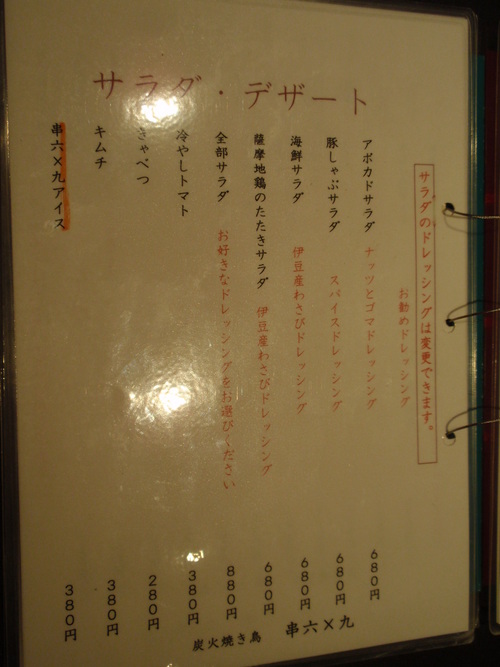 サラダ・デザート
サラダのドレッシングは変更できます。
お勧めドレッシング
アボカドサラダ ナッツとゴマドレッシング 680円
豚しゃぶサラダ スパイスドレッシング 680円
海鮮サラダ 伊豆産わさびドレッシング 680円
薩摩地鶏のたたきサラダ 伊豆産わさびドレッシング 680円
全部サラダ お好きなドレッシングをお選びください 880円
冷やしトマト 380円
きゃべつ 280円
キムチ 380円
串六×九アイス 380円
炭火焼き鳥 串六×九